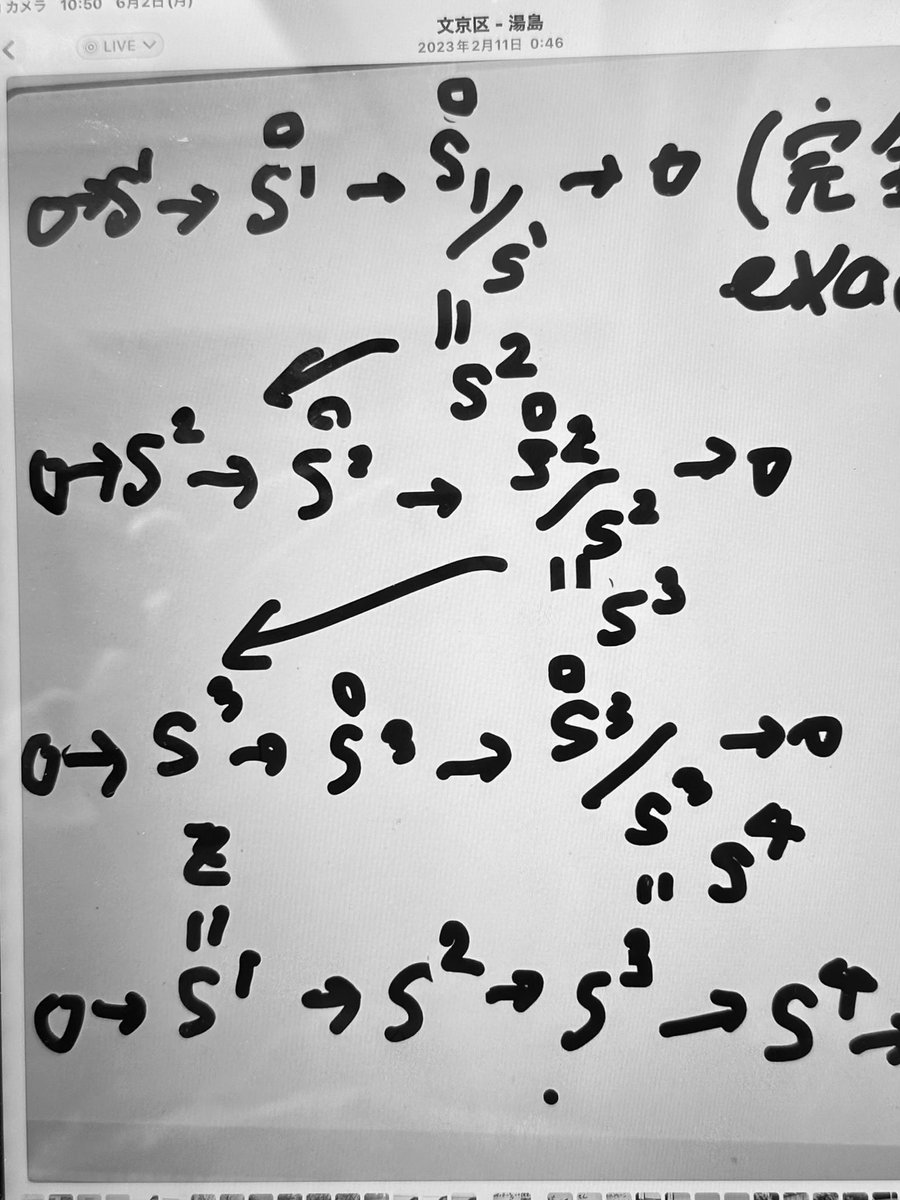 カメラ 10:50 6月2日(月)
文京区 - 湯島
LIVE
2023年2月11日 0:46
0→S¹ → S̊¹ → S̊¹/S¹ → 0 (完全
exa
= S²
0→S² → S̊² → S̊²/S² → 0
= S³
0→ S³ → S̊³ → S̊³/S³ → 0
Z
= S⁴
=
0→ S¹ → S² → S³ → S⁴ →